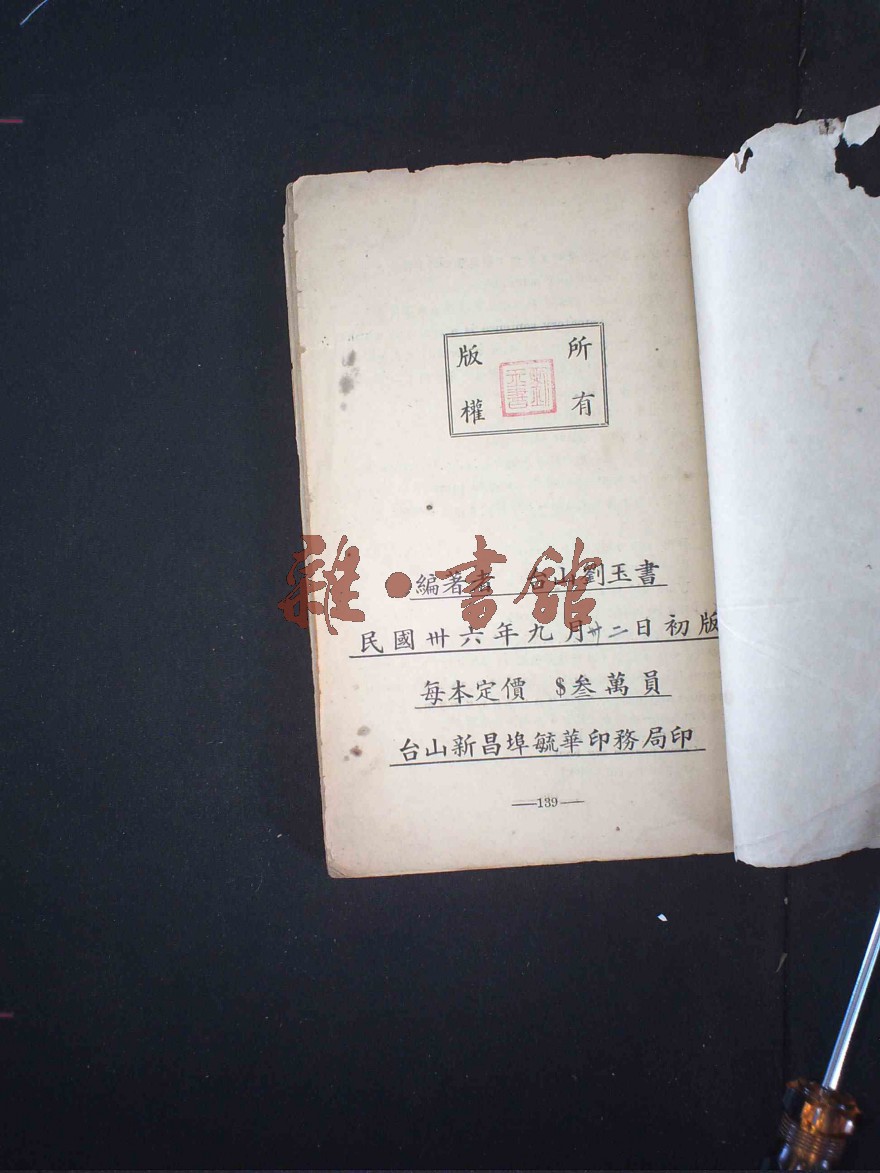 版權所有
劉玉書
編著者 台山劉玉書
民國卅六年九月廿二日初版
每本定價 $叁萬員
台山新昌埠毓華印務局印
—139—
雜·書館